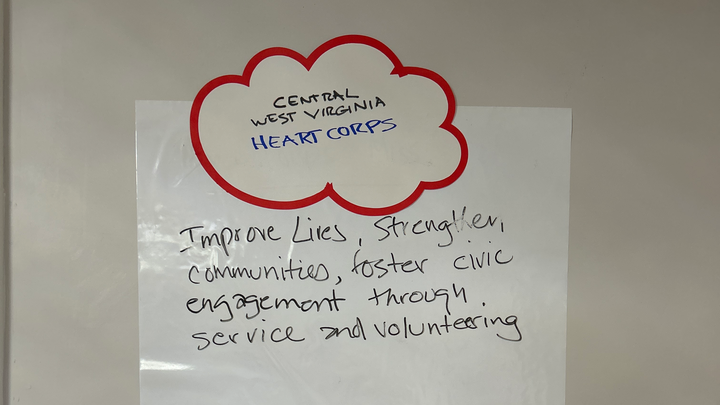 CENTRAL
WEST VIRGINIA
HEART CORPS
Improve Lives, Strengthen
communities, foster civic
engagement through
service and volunteering